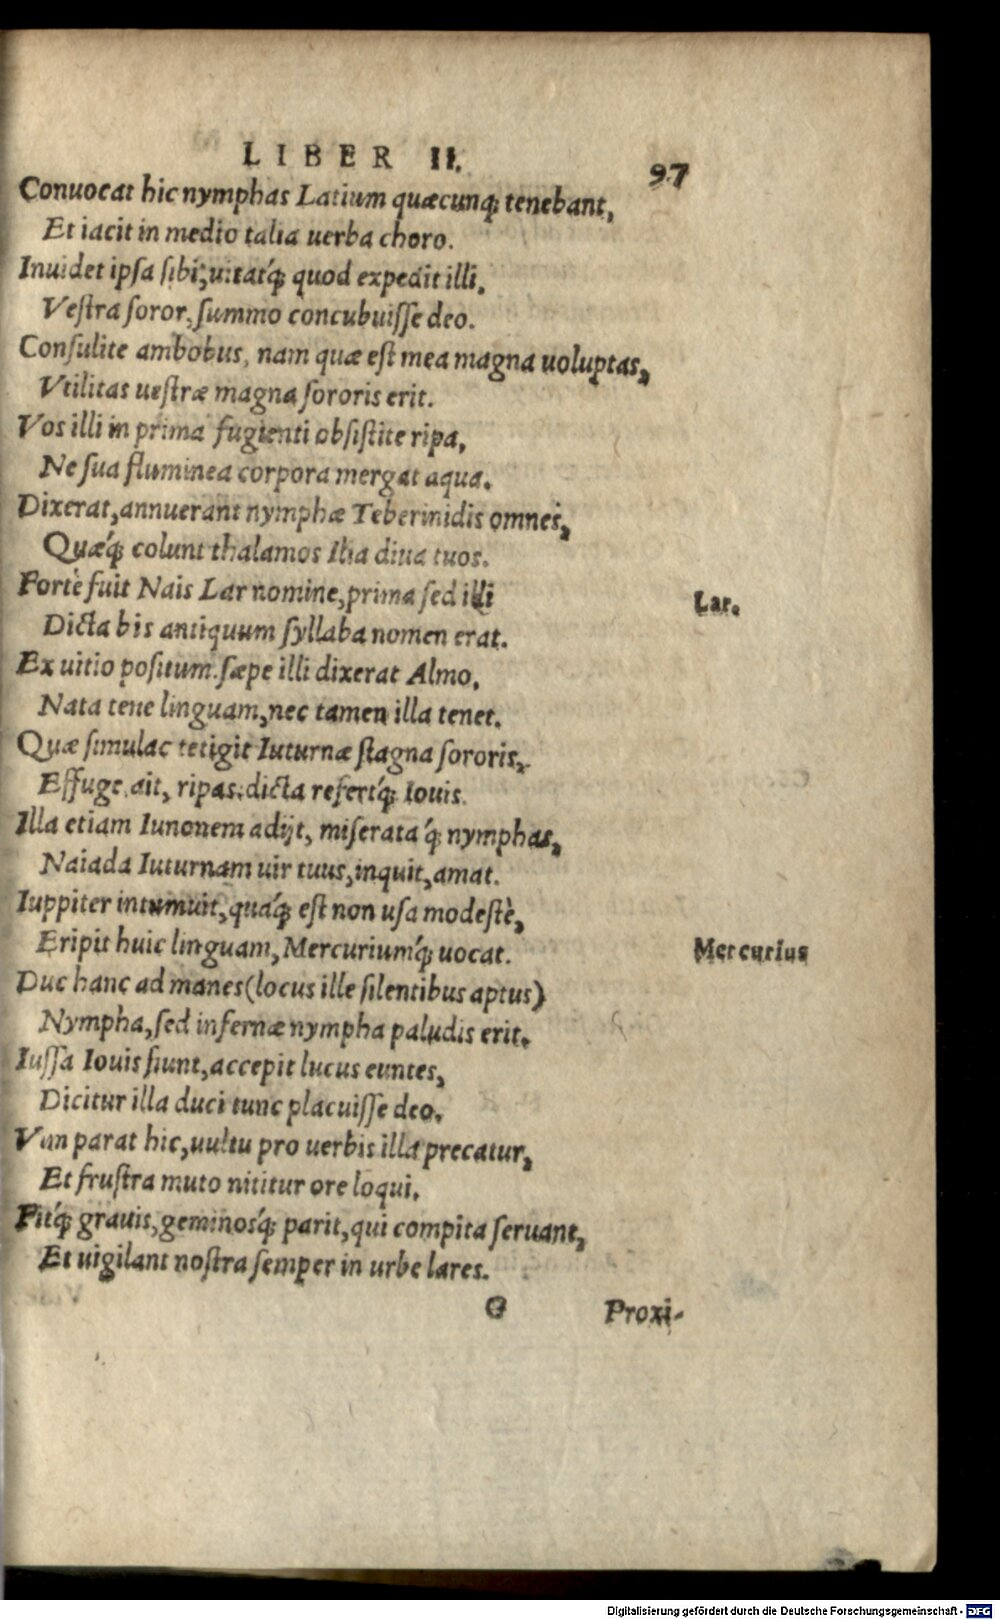 LIBER II. 97
Conuocat hic nymphas Latium quæcunq; tenebant,
Et iacit in medio talia uerba choro.
Inuidet ipsa sibi, uitatq́; quod expedit illi,
Vestra soror, summo concubuisse deo.
Consulite ambobus, nam quæ est mea magna uoluptas,
Vtilitas uestræ magna sororis erit.
Vos illi in prima fugienti obsistite ripa,
Ne sua fluminea corpora mergat aqua.
Dixerat, annuerant nymphæ Teberinidis omnes,
Quæq́; colunt thalamos Ilia diua tuos.
Fortè fuit Nais Lar nomine, prima sed illi
Lar.
Dicta bis antiquum syllaba nomen erat.
Ex uitio positum. sæpe illi dixerat Almo,
Nata tene linguam, nec tamen illa tenet.
Quæ simulac tetigit Iuturnæ stagna sororis,
Effuge, ait, ripas: dicta refertq́; Iouis.
Illa etiam Iunonem adijt, miserataq́; nymphas,
Naiada Iuturnam uir tuus, inquit, amat.
Iuppiter intumuit, quáq́; est non usa modestè,
Eripit huic linguam, Mercuriumq́; uocat.
Mercurius
Duc hanc ad manes (locus ille silentibus aptus)
Nympha, sed infernæ nympha paludis erit.
Iussa Iouis fiunt, accepit lucus euntes,
Dicitur illa duci tunc placuisse deo.
Vim parat hic, uultu pro uerbis illa precatur,
Et frustra muto nititur ore loqui.
Fitq́; grauis, geminosq́; parit, qui compita seruant,
Et uigilant nostra semper in urbe lares.
G Proxi-
Digitalisierung gefördert durch die Deutsche Forschungsgemeinschaft - DFG